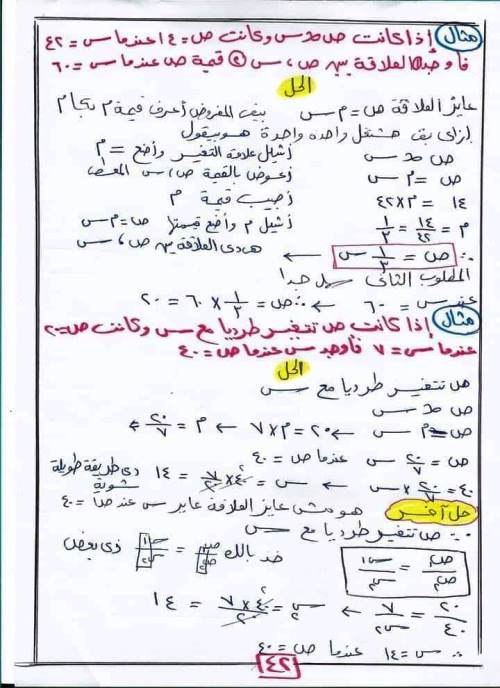 مثال إذا كانت ص ∝ س وكانت ص = ١٤ عندما س = ٤٢
فأوجد ① العلاقة بين ص ، س ② قيمة ص عندما س = ٦٠
الحل
عايز العلاقة ص = م س يبقى المفروض أعرف قيمة م بكام
إزاى بقى هشتغل واحده واحدة هو بيقول
ص ∝ س أشيل علاقة التغير وأضع = م
ص = م س أعوض بالقيمة ص ، س المعطاه
١٤ = م × ٤٢ أجيب قيمة م
م = ١٤/٤٢ = ١/٣ أشيل م وأضع قيمتها ص = م س
∴ ص = ١/٣ س ← هى دى العلاقة بين ص ، س
المطلوب الثانى سهل جدا
عند س = ٦٠ ← ∴ ص = ١/٣ × ٦٠ = ٢٠
مثال إذا كانت ص تتغير طرديا مع س وكانت ص = ٢٠
عندما س = ٧ فأوجد س عندما ص = ٤٠
الحل
ص تتغير طرديا مع س
ص ∝ س
ص = م س ← ٢٠ = م × ٧ ← م = ٢٠/٧ ⇐
ص = ٢٠/٧ س عندما ص = ٤٠
٤٠ = ٢٠/٧ × س ← س = ٤٠ × ٧/٢٠ = ١٤ دى طريقة طويلة شوية
حل آخر هو مش عايز العلاقة عايز س عند ص = ٤٠
∵ ص تتغير طرديا مع س
ص١/ص٢ = س١/س٢ خد بالك ص١/ص٢ = س١/س٢ زى بعض
٢٠/٤٠ = ٧/س٢ ← س٢ = ٤٠ × ٧/٢٠ = ١٤
∴ س = ١٤ عندما ص = ٤٠
٤٢